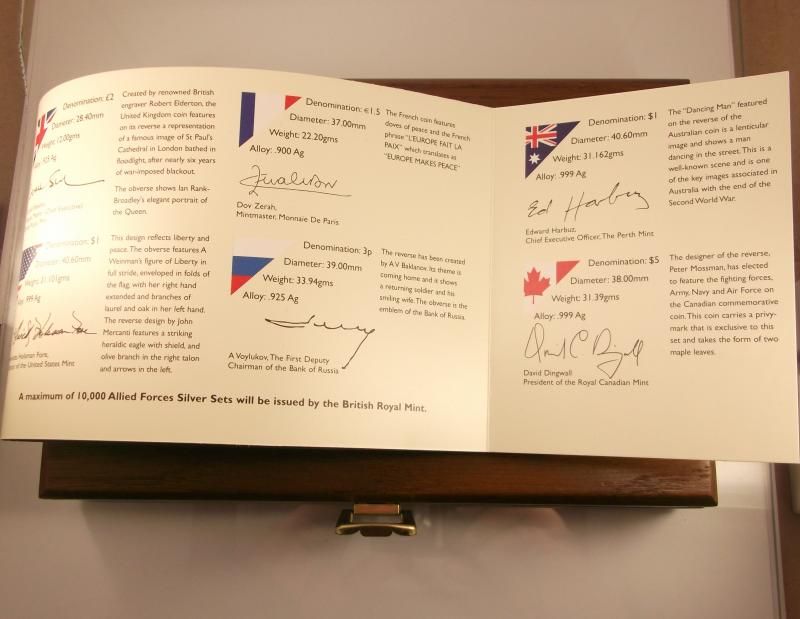 Denomination: £2
Diameter: 28.40mm
Weight: 12.00gms
.925 Ag
(Chief Executive)
Created by renowned British
engraver Robert Elderton, the
United Kingdom coin features
on its reverse a representation
of a famous image of St Paul's
Cathedral in London bathed in
floodlight, after nearly six years
of war-imposed blackout.
The obverse shows Ian Rank-
Broadley's elegant portrait of
the Queen.
Denomination: $1
Diameter: 40.60mm
Weight: 31.101gms
.999 Ag
Holsman Fore,
of the United States Mint
This design reflects liberty and
peace. The obverse features A
Weinman's figure of Liberty in
full stride, enveloped in folds of
the flag, with her right hand
extended and branches of
laurel and oak in her left hand.
The reverse design by John
Mercanti features a striking
heraldic eagle with shield, and
olive branch in the right talon
and arrows in the left.
Denomination: €1.5
Diameter: 37.00mm
Weight: 22.20gms
Alloy: .900 Ag
Dov Zerah,
Mintmaster, Monnaie De Paris
The French coin features
doves of peace and the French
phrase "L'EUROPE FAIT LA
PAIX" which translates as
"EUROPE MAKES PEACE"
Denomination: 3p
Diameter: 39.00mm
Weight: 33.94gms
Alloy: .925 Ag
A Voylukov, The First Deputy
Chairman of the Bank of Russia
The reverse has been created
by A V Baklanov. Its theme is
coming home and it shows
a returning soldier and his
smiling wife. The obverse is the
emblem of the Bank of Russia.
A maximum of 10,000 Allied Forces Silver Sets will be issued by the British Royal Mint.
Denomination: $1
Diameter: 40.60mm
Weight: 31.162gms
Alloy: .999 Ag
Ed Harbuz
Edward Harbuz,
Chief Executive Officer, The Perth Mint
The "Dancing Man" featured
on the reverse of the
Australian coin is a lenticular
image and shows a man
dancing in the street. This is a
well-known scene and is one
of the key images associated in
Australia with the end of the
Second World War.
Denomination: $5
Diameter: 38.00mm
Weight: 31.39gms
Alloy: .999 Ag
David C Dingwall
David Dingwall
President of the Royal Canadian Mint
The designer of the reverse,
Peter Mossman, has elected
to feature the fighting forces,
Army, Navy and Air Force on
the Canadian commemorative
coin. This coin carries a privy-
mark that is exclusive to this
set and takes the form of two
maple leaves.